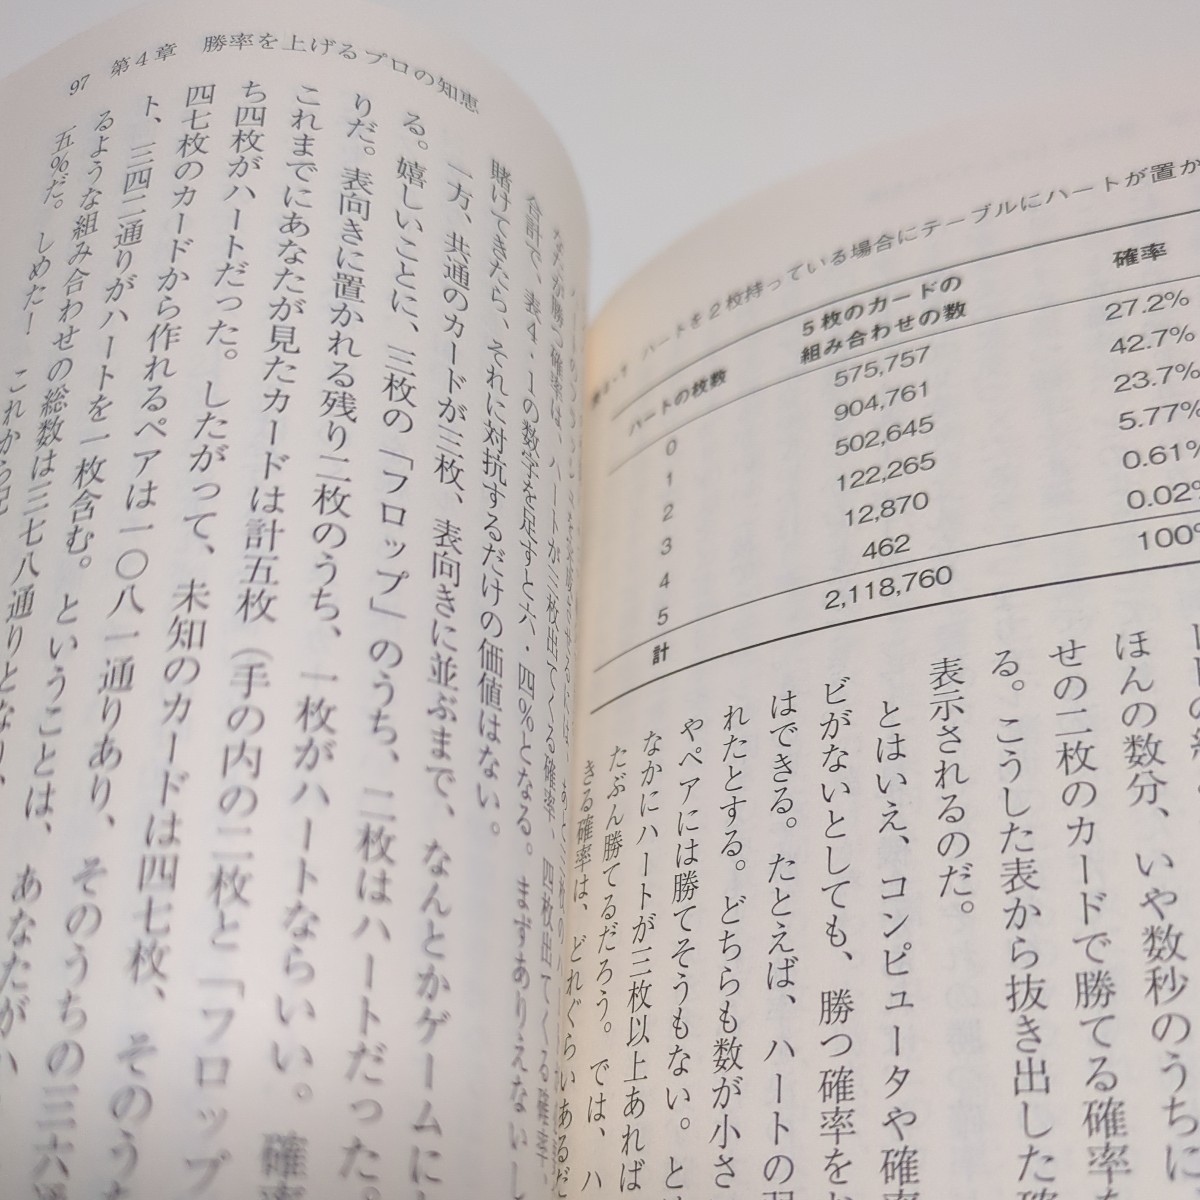 ハートを2枚持っている場合にテーブルにハートが置か
ハートの枚数 5枚のカードの組み合わせの数 確率
0 575,757 27.2%
1 904,761 42.7%
2 502,645 23.7%
3 122,265 5.77%
4 12,870 0.61%
5 462 0.02%
計 2,118,760 100%
ほんの数分、いや数秒のうちに
せの二枚のカードで勝てる確率
る。こうした表から抜き出した
表示されるのだ。
とはいえ、コンピュータや確率
ビがないとしても、勝つ確率を
はできる。たとえば、ハートの
れたとする。どちらも数が小さ
やペアには勝てそうもない。と
なかにハートが三枚以上あれば
たぶん勝てるだろう。では、ハ
きる確率は、どれぐらいあるだ
97 第4章 勝率を上げるプロの知恵
なたが勝つ確率は、ハートが三枚出てくる確率、四枚出てくる確率、
合計で、表4・1の数字を足すと六・四%となる。まずありえないし
賭けてきたら、それに対抗するだけの価値はない。
一方、共通のカードが三枚、表向きに並ぶまで、なんとかゲームに
る。嬉しいことに、三枚の「フロップ」のうち、二枚はハートだった。
りだ。表向きに置かれる残り二枚のうち、一枚がハートならいい。確
これまでにあなたが見たカードは計五枚（手の内の二枚と「フロップ
ち四枚がハートだった。したがって、未知のカードは四七枚、その
四七枚のカードから作れるペアは一〇八一通りあり、そのうちの三六
ト、三四二通りがハートを一枚含む。ということは、あなたがハ
るような組み合わせの総数は三七八通りとなり、
五%だ。しめた！これから